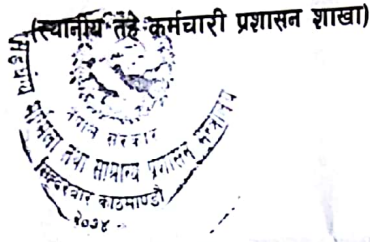 (स्थानीय तह कर्मचारी प्रशासन शाखा)
नेपाल सरकार
सङ्घीय मामिला तथा सामान्य प्रशासन मन्त्रालय
सिंहदरबार काठमाण्डौ
२०७४